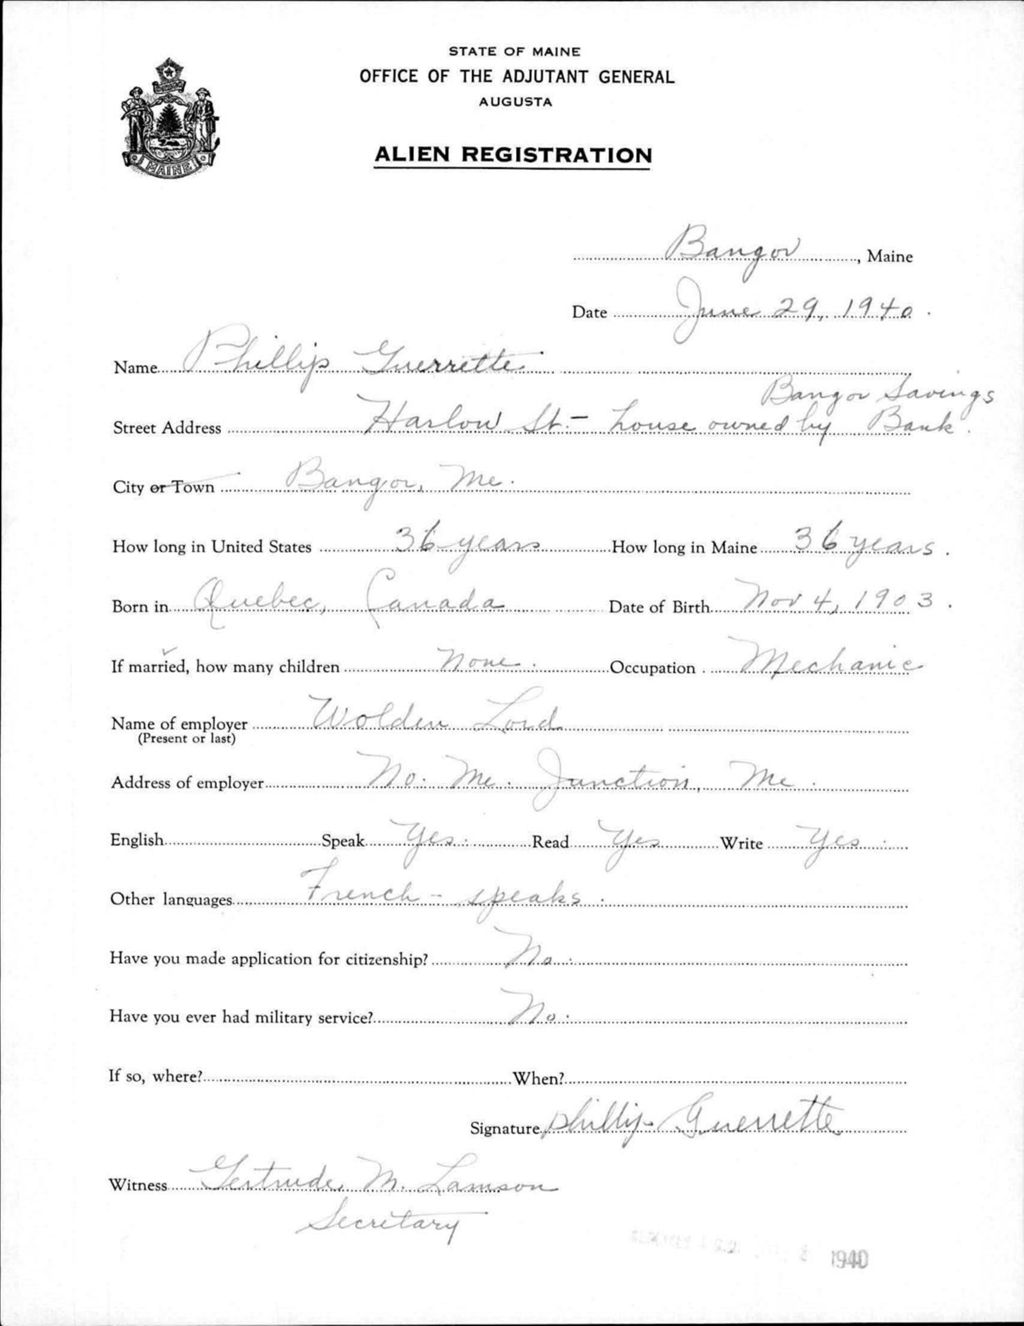 STATE OF MAINE
OFFICE OF THE ADJUTANT GENERAL
AUGUSTA
ALIEN REGISTRATION
MAINE
Bangor, Maine
Date June 29, 1940.
Name Phillip Guerrette
Bangor Savings
Street Address Harlow St. - house owned by Bank.
City or Town Bangor, Me.
How long in United States 36 years How long in Maine 36 years.
Born in Quebec, Canada Date of Birth Nov 4, 1903.
If married, how many children None. Occupation Mechanic
Name of employer Wolden Lord
(Present or last)
Address of employer No. Me. Junction, Me.
English Speak Yes. Read Yes Write Yes.
Other languages French - speaks.
Have you made application for citizenship? No.
Have you ever had military service? No.
If so, where? When?
Signature Phillip Guerrette
Witness Gertrude M. Lamson
Secretary
1940